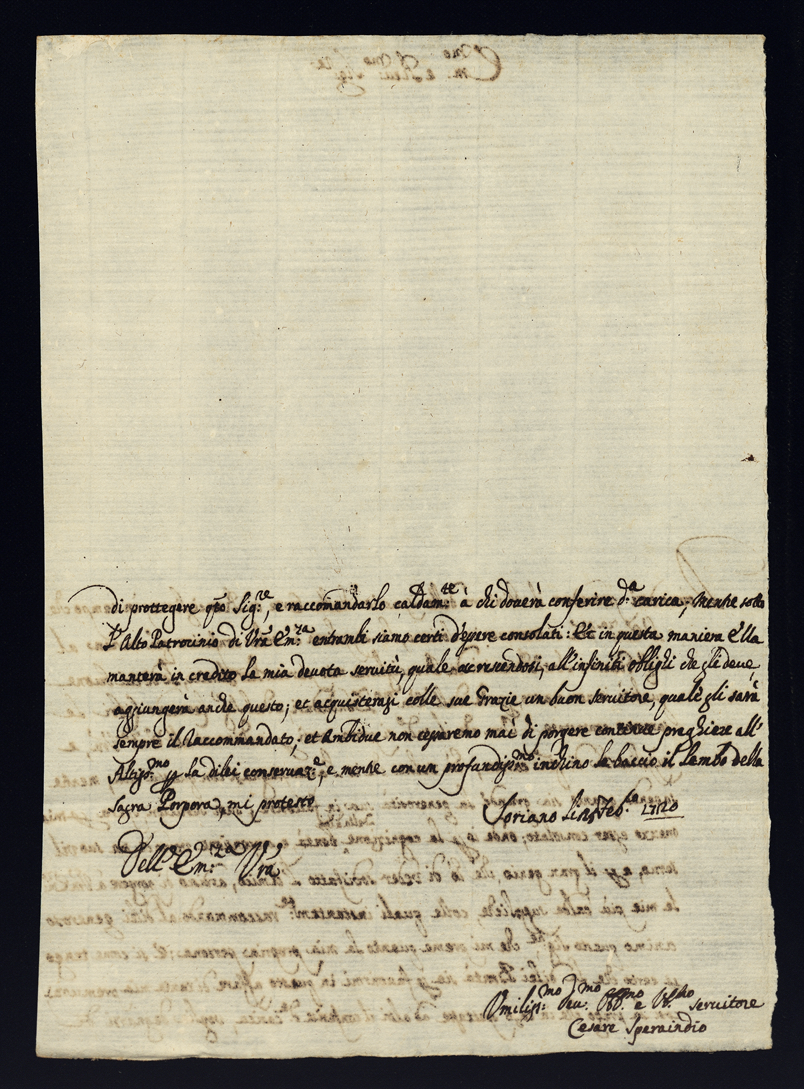 di prottegere qsto Sig.re, e raccomandarlo caldam.te à chi doverà conferire d.a carica; Mentre sotto
l'Alto Patrocinio di Vrã Em.za entrambi siamo certi d'essere consolati: Et in questa maniera Ella
manterà in credito la mia devota servitù, quale accrescendosi, all'infiniti oblighi che gli deve,
aggiungerà anche questo; et acquisterassi colle sue Grazie un buon servitore, quale gli sarà
sempre il Raccommandato; et Ambidue non cessaremo mai di porgere continue preghiere all'
Altiss.mo p la dilei conservaz.e, e mentre con un profundiss.mo inchino le baccio il Lembo della
Sagra Porpora, mi protesto
Soriano Feb. 1720
Dell' Em.za Vrã
Umiliss.mo Dev.mo Obb.mo e servitore
Cesare Speraindio